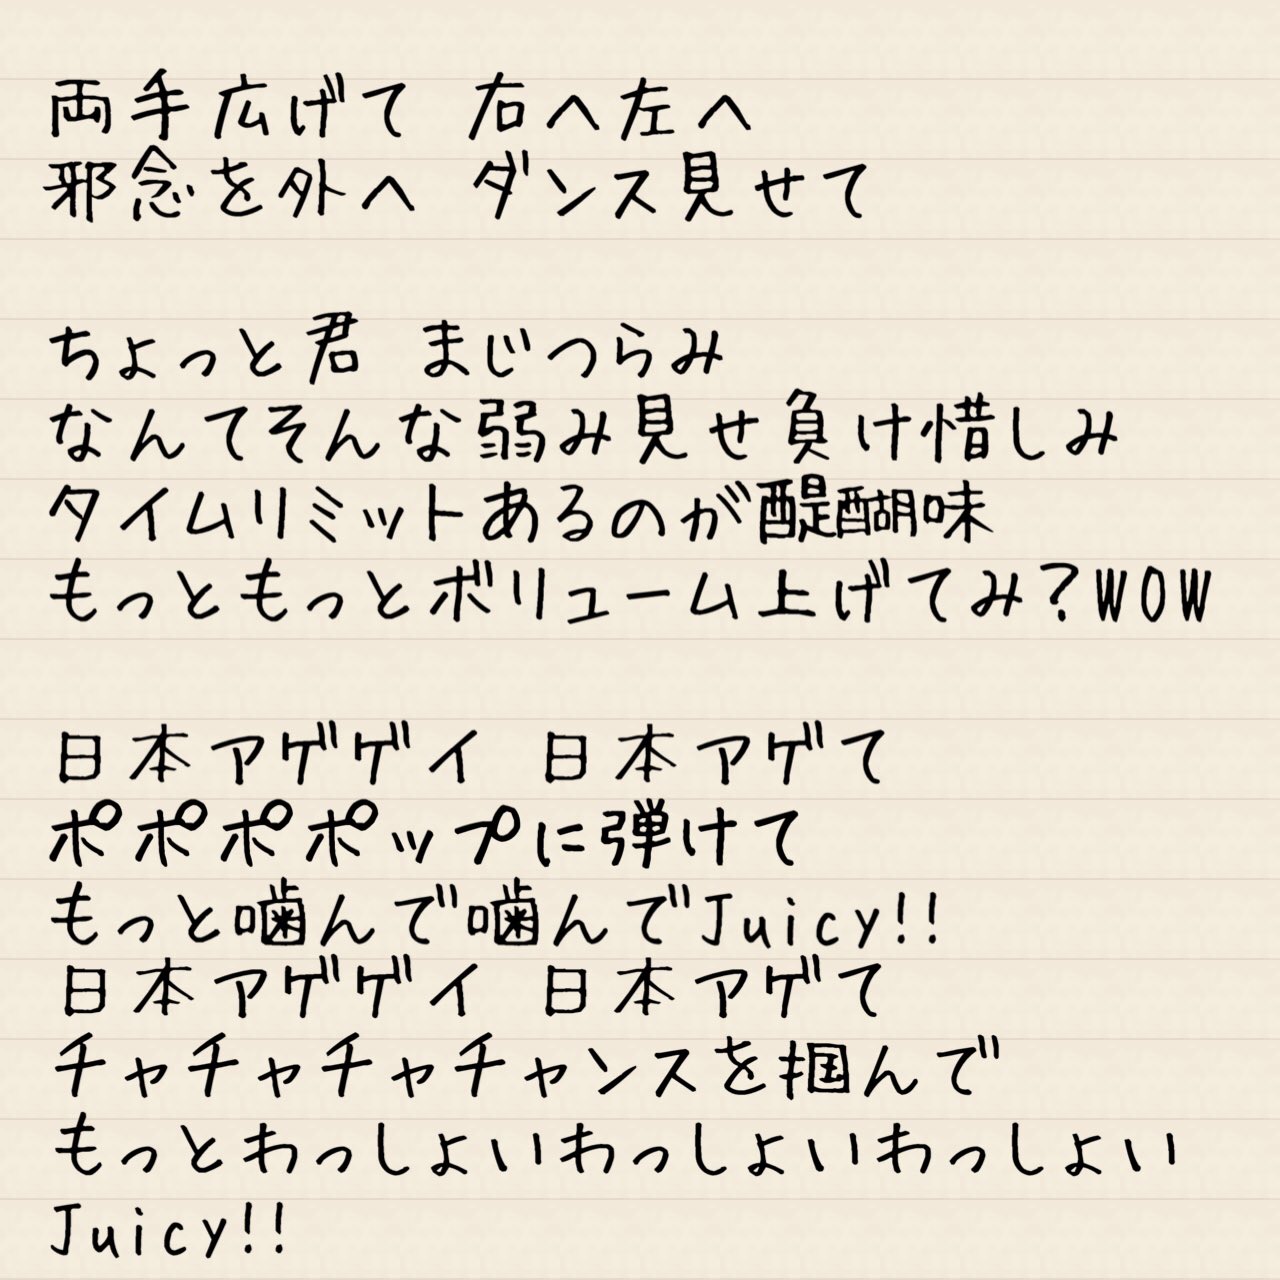 両手広げて 右へ左へ
邪念を外へ ダンス見せて
ちょっと君 まじつらみ
なんてそんな弱み見せ負け惜しみ
タイムリミットあるのが醍醐味
もっともっとボリューム上げてみ?WOW
日本アゲゲイ 日本アゲて
ポポポポップに弾けて
もっと噛んで噛んでJuicy!!
日本アゲゲイ 日本アゲて
チャチャチャチャンスを掴んで
もっとわっしょいわっしょいわっしょい
Juicy!!